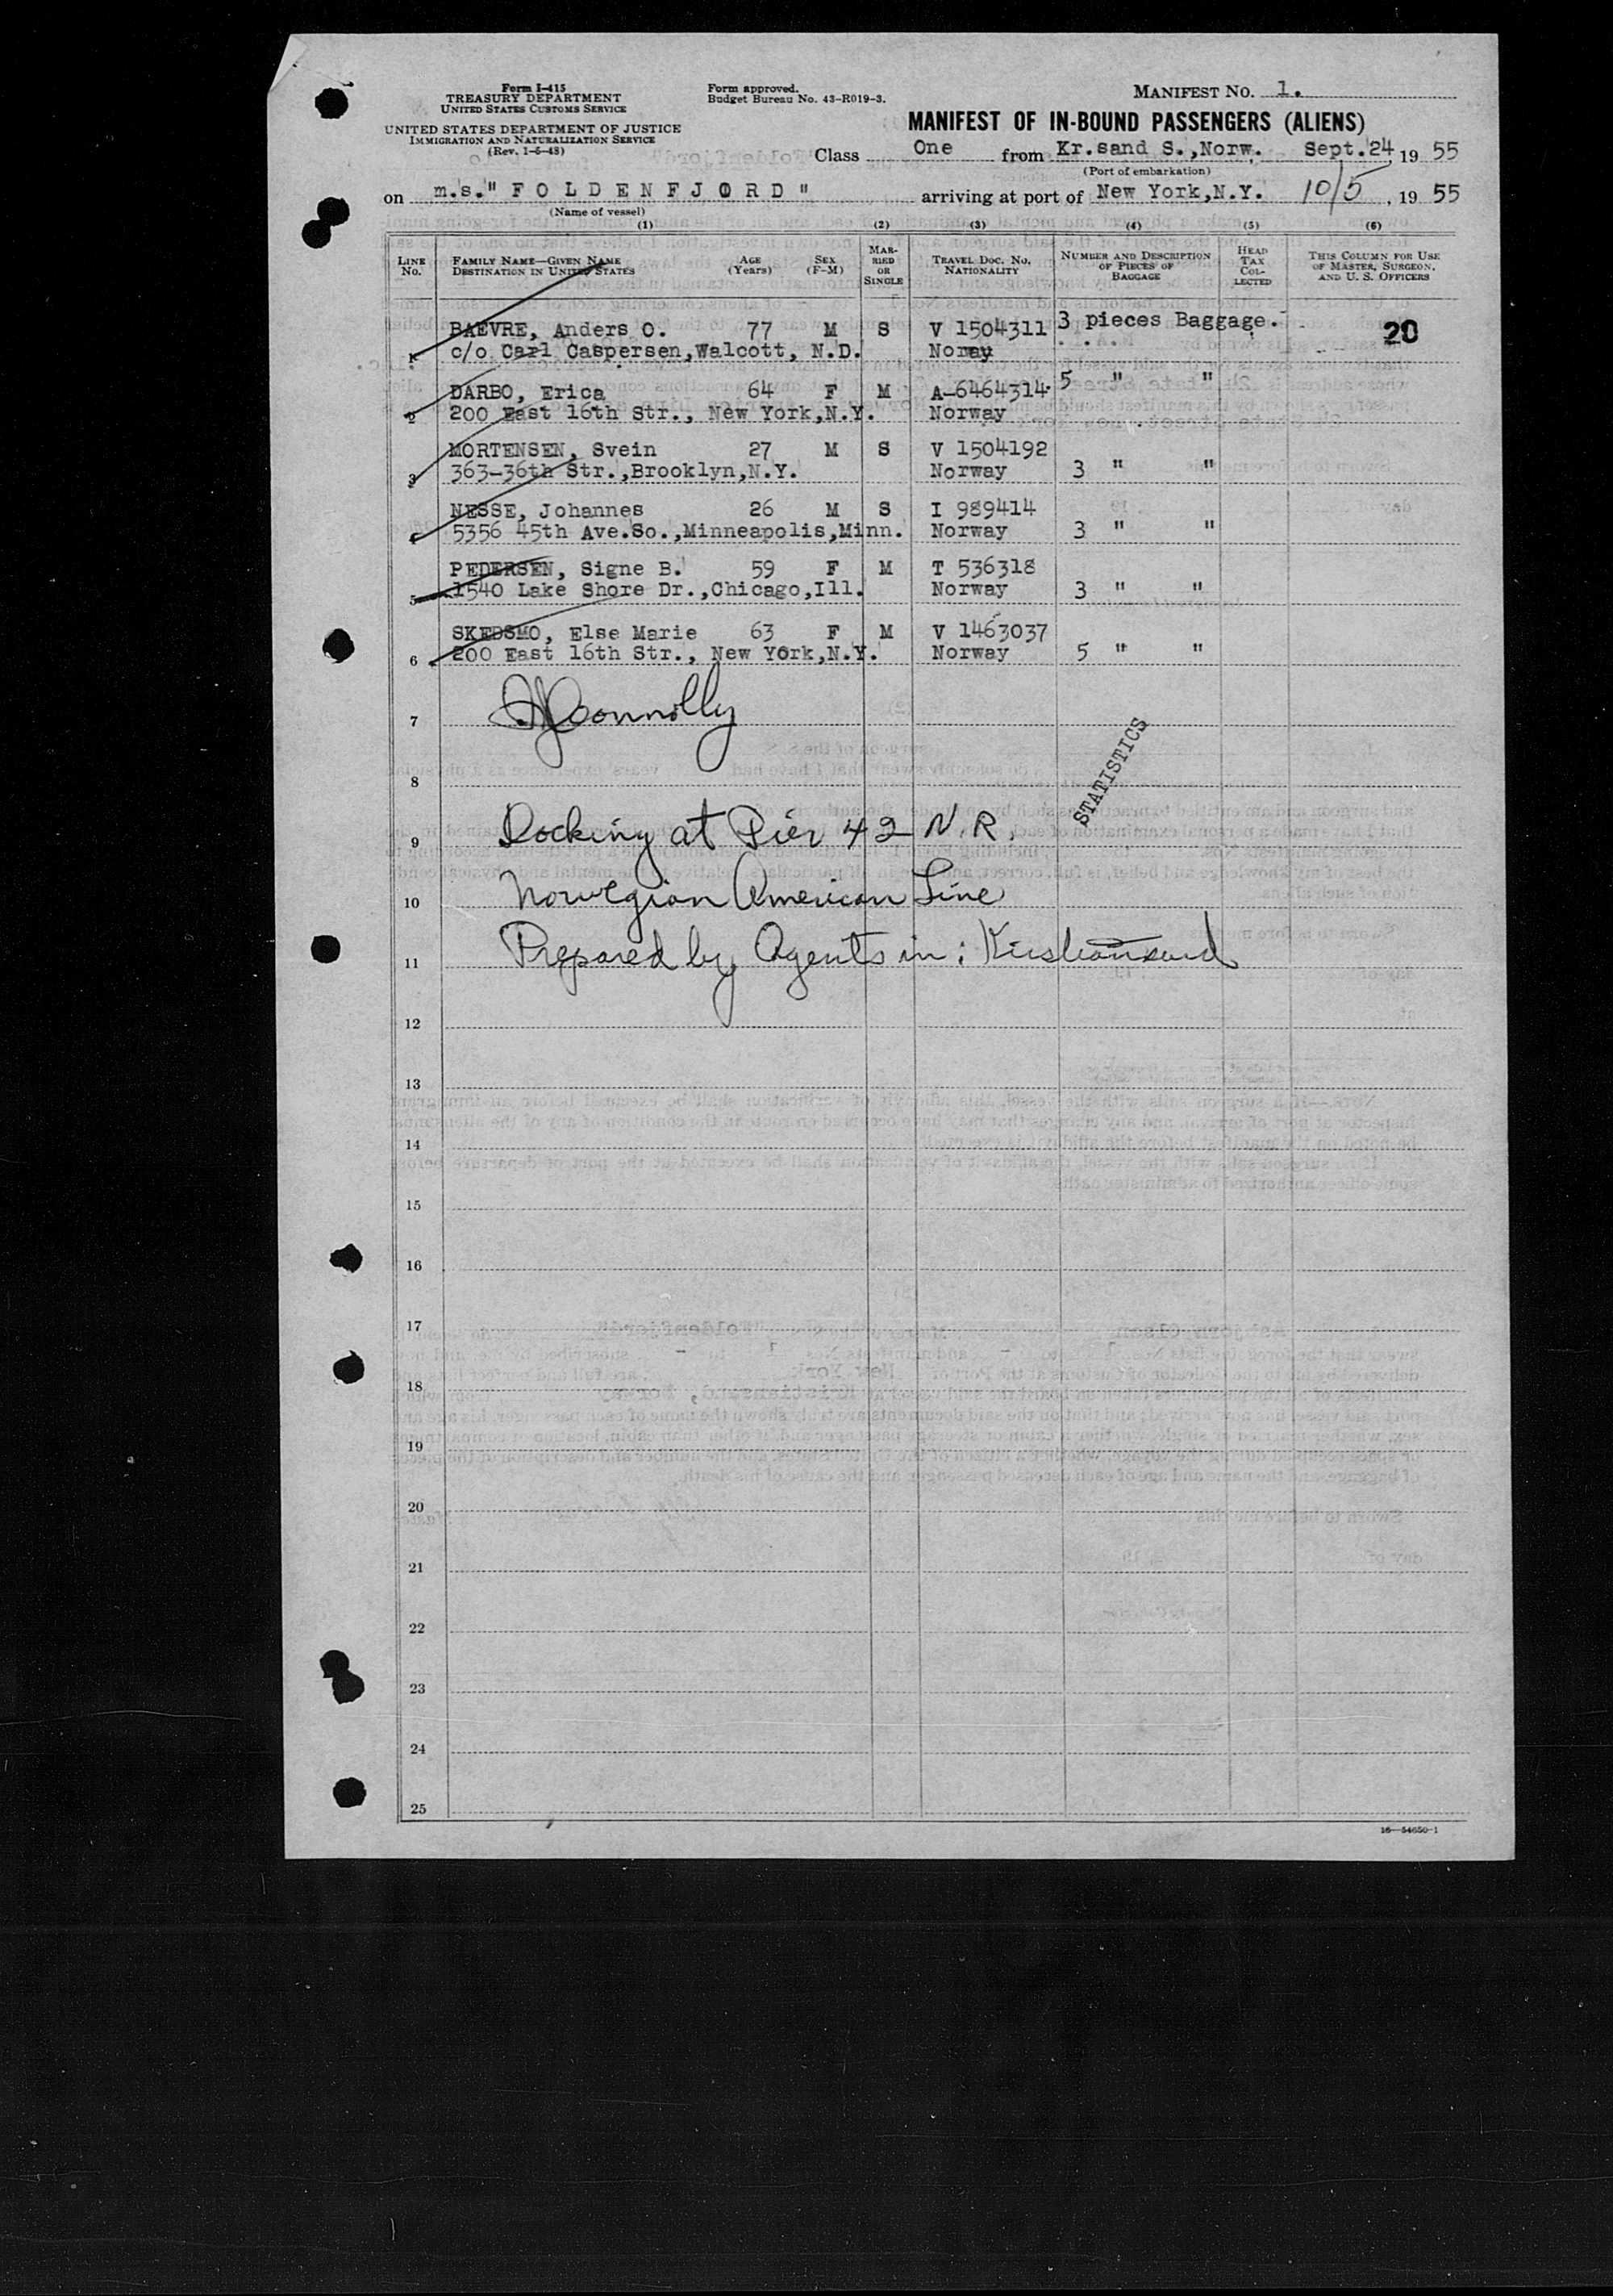 Form I-415
TREASURY DEPARTMENT
UNITED STATES CUSTOMS SERVICE
UNITED STATES DEPARTMENT OF JUSTICE
IMMIGRATION AND NATURALIZATION SERVICE
(Rev. 1-5-48)
Form approved.
Budget Bureau No. 43-R019-3.
MANIFEST NO. 1.
MANIFEST OF IN-BOUND PASSENGERS (ALIENS)
Class One from Kr.sand S.,Norw. Sept.24, 19 55
(Port of embarkation)
on m.s." F O L D E N F J O R D " arriving at port of New York,N.Y. 10/5, 19 55
(Name of vessel)
(1) (2) (3) (4) (5) (6)
LINE No. FAMILY NAME—GIVEN NAME DESTINATION IN UNITED STATES AGE (Years) SEX (F-M) MARRIED OR SINGLE TRAVEL DOC. NO. NATIONALITY NUMBER AND DESCRIPTION OF PIECES OF BAGGAGE HEAD TAX COLLECTED THIS COLUMN FOR USE OF MASTER, SURGEON, AND U. S. OFFICERS
BAEVRE, Anders O. 77 M S V 1504311 3 pieces Baggage. 20
1 c/o Carl Caspersen,Walcott, N.D. Norway
DARBO, Erica 64 F M A-6464314 5 " "
2 200 East 16th Str., New York,N.Y. Norway
MORTENSEN, Svein 27 M S V 1504192
3 363-36th Str.,Brooklyn,N.Y. Norway 3 " "
NESSE, Johannes 26 M S I 989414
4 5356 45th Ave.So.,Minneapolis,Minn. Norway 3 " "
PEDERSEN, Signe B. 59 F M T 536318
5 1540 Lake Shore Dr.,Chicago,Ill. Norway 3 " "
SKEDSMO, Else Marie 63 F M V 1463037
6 200 East 16th Str., New York,N.Y. Norway 5 " "
7 Connolly
STATISTICS
8
9 Docking at Pier 42 N.R.
10 Norwegian American Line
11 Prepared by Agents in: Kristiansand
12
13
14
15
16
17
18
19
20
21
22
23
24
25
16—54650-1